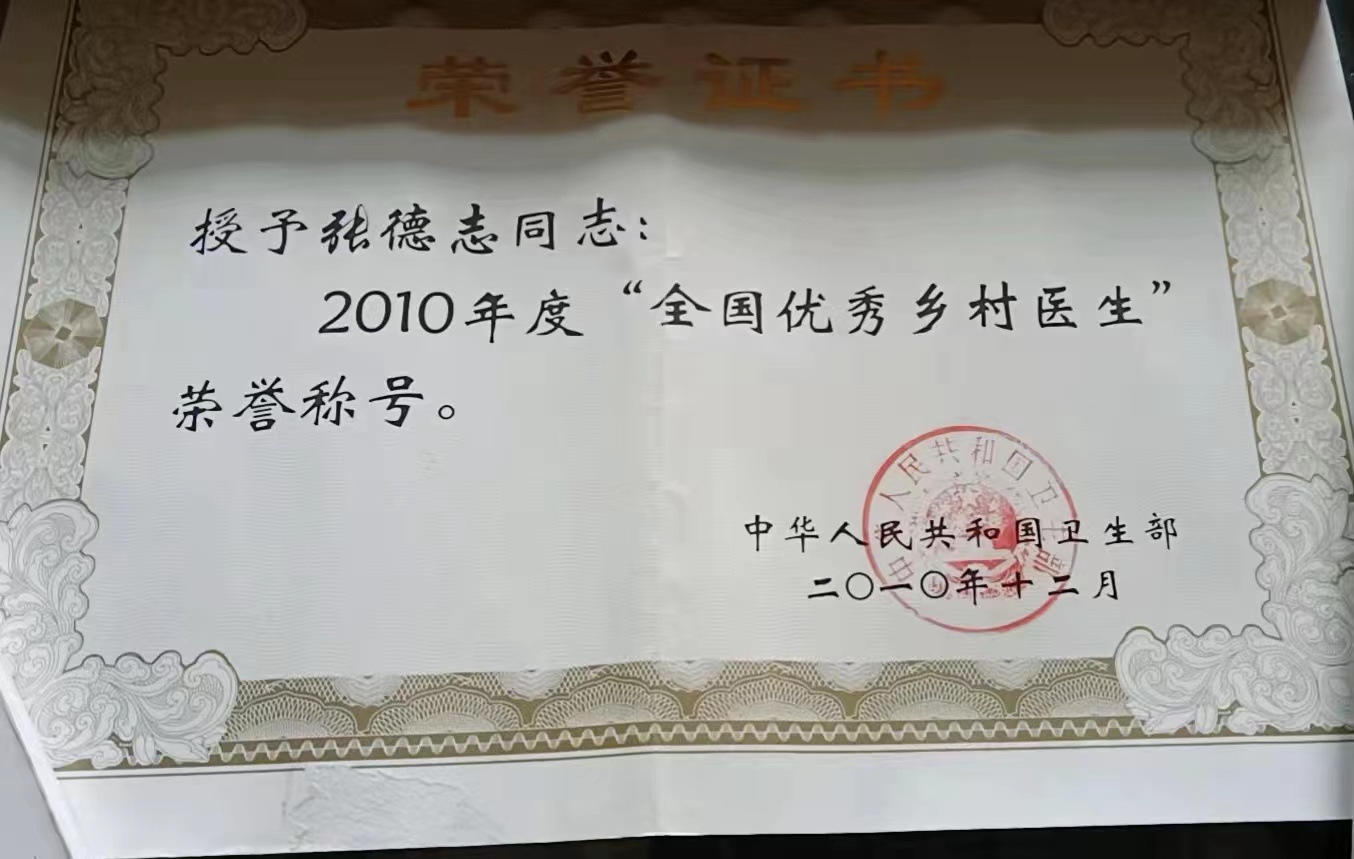 荣誉证书
授予张德志同志：
2010年度“全国优秀乡村医生”
荣誉称号。
中华人民共和国卫生部
二〇一〇年十二月
中华人民共和国卫生部